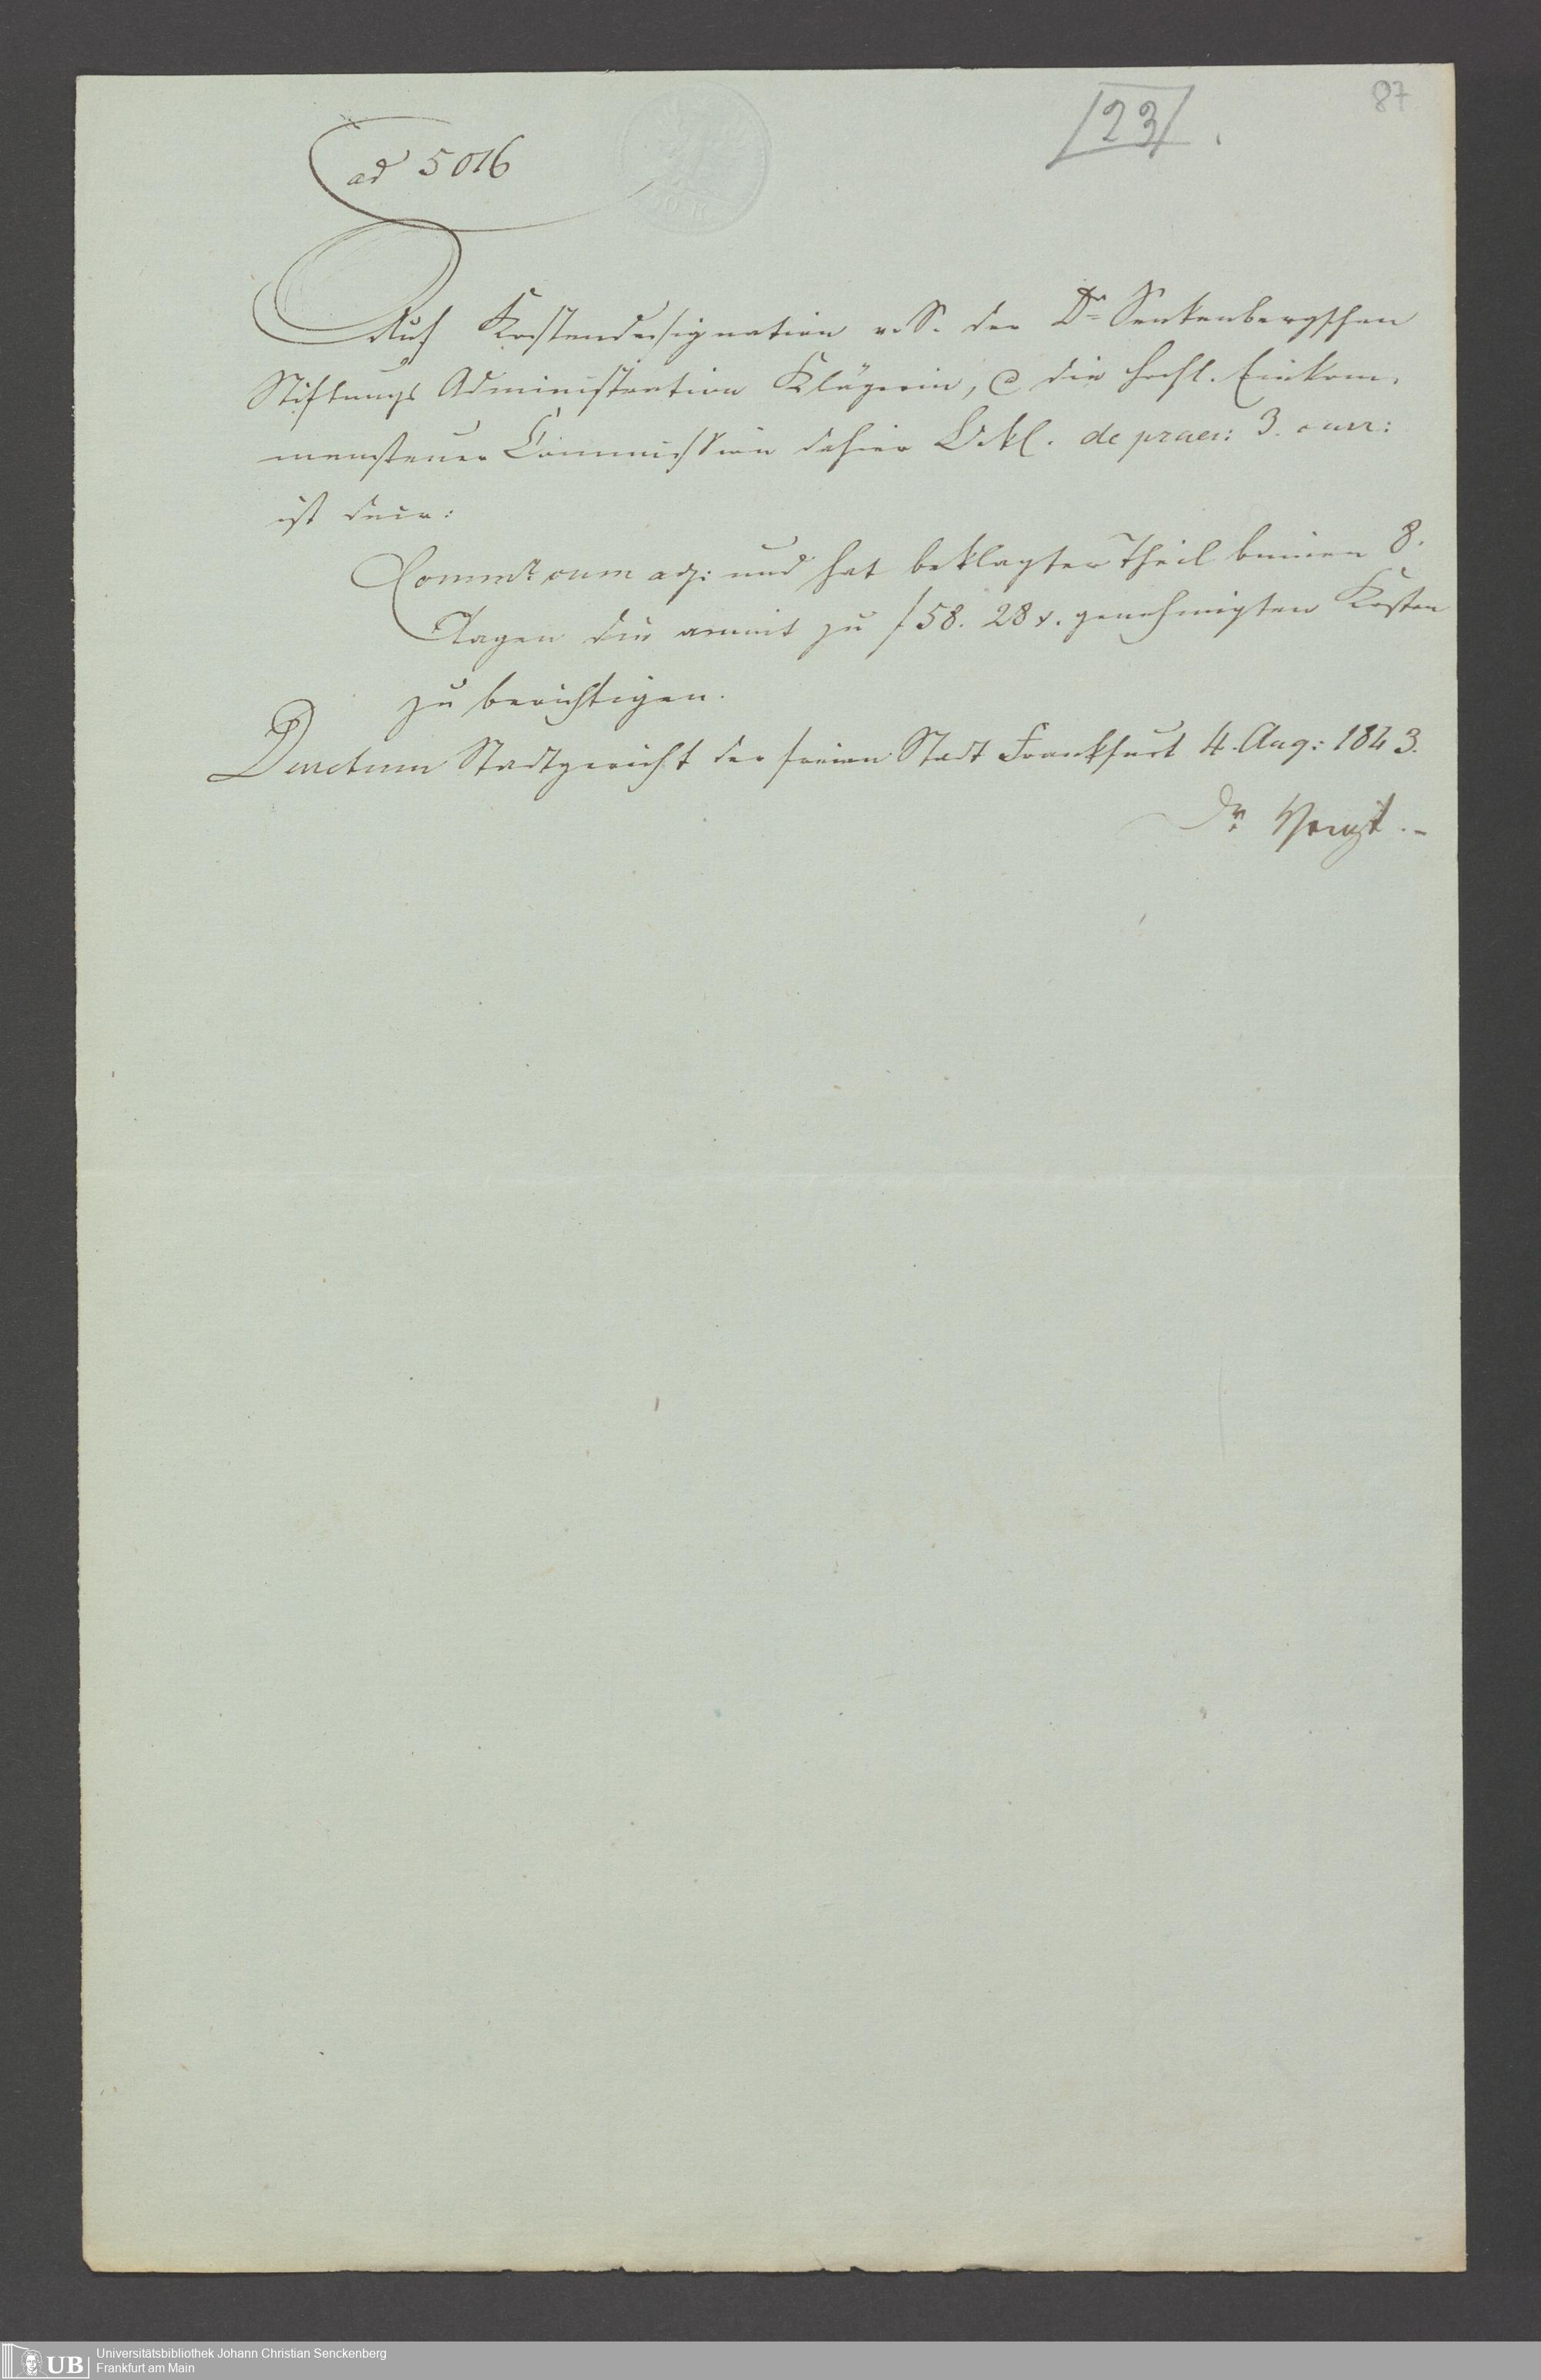 87
[23].
ad 5016
Auf Kostendesignation v. S. der Dr Senkenbergschen
Stiftungs Administration Klägerin, c die hochl. Einkom-
mensteuer Commission dahier Bekl. de praes: 3. curr:
ist decr:
Commr cum adj: und hat beklagter Theil binnen 8.
Tagen die anmit zu f 58. 28 x. genehmigten Kosten
zu berichtigen.
Decretum Stadtgericht der freien Stadt Frankfurt 4. Aug: 1843.
Dr.
UB
Universitätsbibliothek Johann Christian Senckenberg
Frankfurt am Main